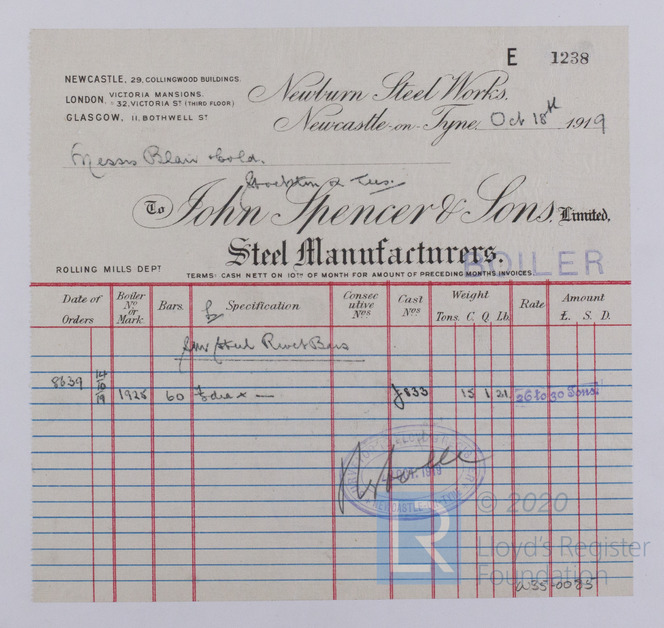 E 1238
NEWCASTLE, 29, COLLINGWOOD BUILDINGS.
LONDON. VICTORIA MANSIONS.
32, VICTORIA ST (THIRD FLOOR)
GLASGOW, 11, BOTHWELL ST
Newburn Steel Works.
Newcastle-on-Tyne. Oct 18th 1919
Messrs Blair & Co Ld.
Stockton on Tees.
To John Spencer & Sons, Limited,
Steel Manufacturers.
BOILER
ROLLING MILLS DEPT
TERMS: CASH NETT ON 10TH OF MONTH FOR AMOUNT OF PRECEDING MONTHS INVOICES
Date of Orders Boiler No or Mark Bars. Specification Consecutive Nos Cast Nos Weight Tons. C. Q. Lb. Rate Amount £. S. D.
Steel Rivet Bars
8639 14/10/19 1928 60 dia x — 833 15 1 21 26 to 30 Tons.
OCT. 1919
NEWCASTLE
© 2020
LR
Lloyd's Register
Foundation
W35-0085